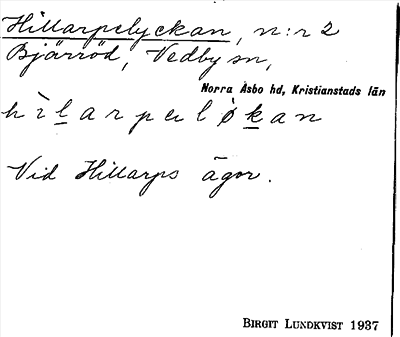 Hillarpelyckan, n:r 2
Bjärröd, Vedby sn,
Norra Åsbo hd, Kristianstads län
hìlarpəløkan
Vid Hillarps ägor.
BIRGIT LUNDKVIST 1937